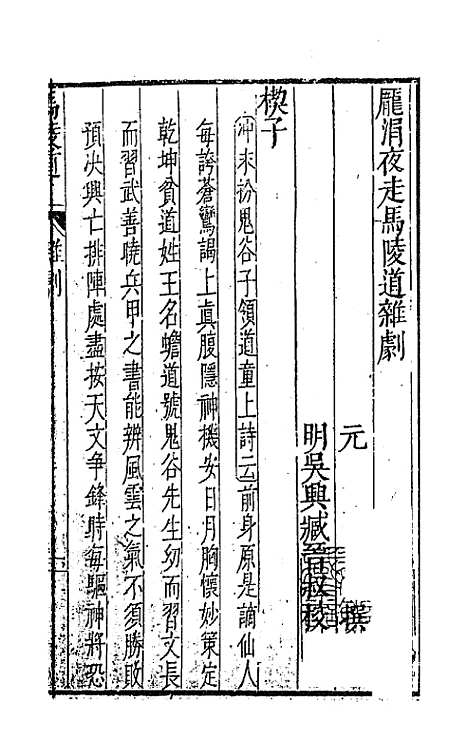 龐涓夜走馬陵道雜劇
元 撰
明吳興臧晉叔校
楔子
冲末扮鬼谷子領道童上詩云前身原是謫仙人
每誇蒼鸞謁上真腹隱神機安日月胸懷妙策定
乾坤貧道姓王名蟾道號鬼谷先生幼而習文長
而習武善曉兵甲之書能辨風雲之氣不須勝敗
預决興亡排陣處盡按天文爭鋒時每驅神將恐
馬陵道 雜劇 一